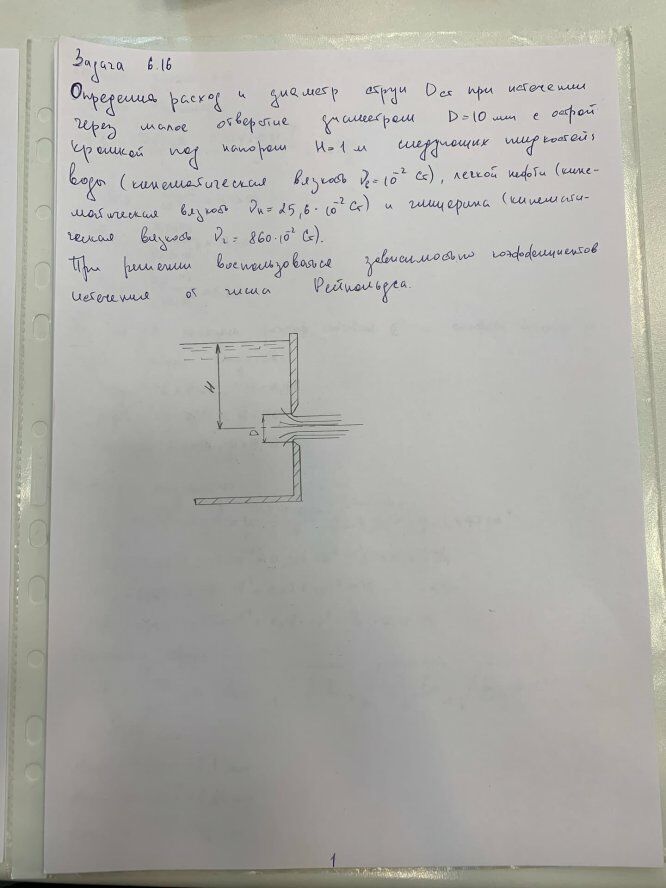 Задача 6.16
Определить расход и диаметр струи Dст при истечении
через малое отверстие диаметром D=10 мм с острой
кромкой под напором H=1 м следующих жидкостей:
воды (кинематическая вязкость νв=10⁻² Ст), легкой нефти (кине-
матическая вязкость νн=25,6·10⁻² Ст) и глицерина (кинемати-
ческая вязкость νг=860·10⁻² Ст).
При решении воспользоваться зависимостью коэффициентов
истечения от числа Рейнольдса.
H
D
1